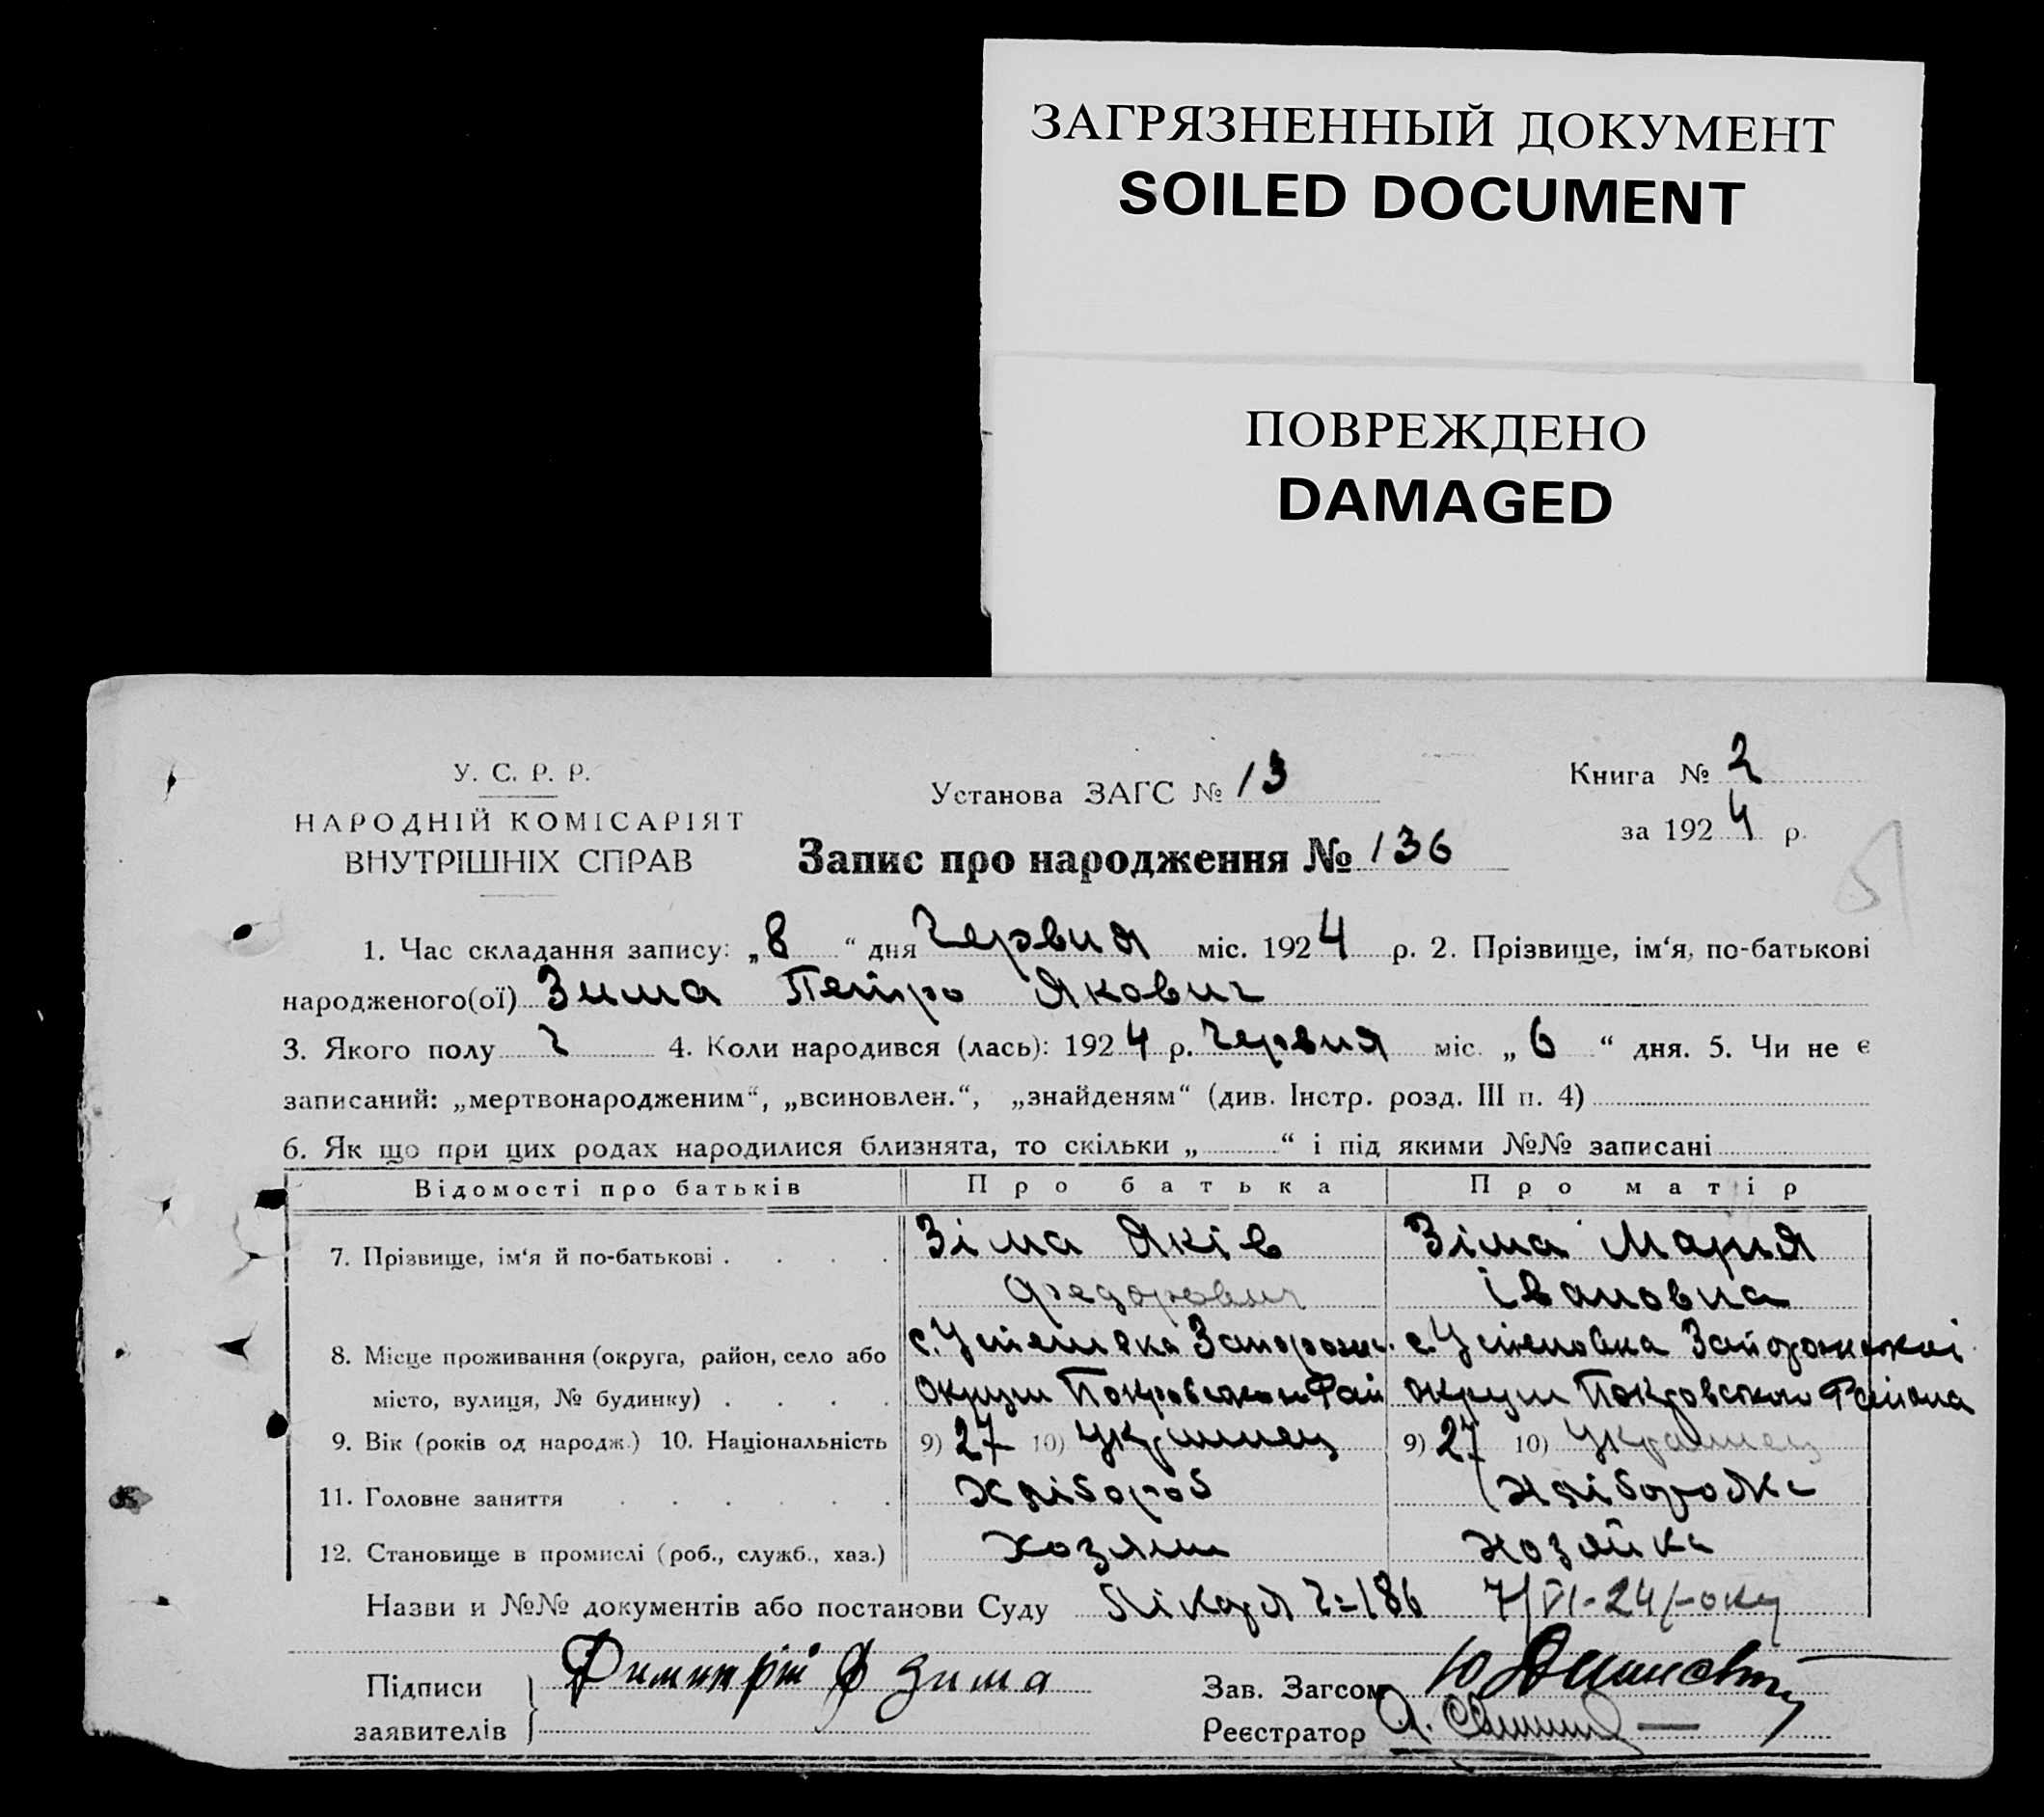 ЗАГРЯЗНЕННЫЙ ДОКУМЕНТ
SOILED DOCUMENT
ПОВРЕЖДЕНО
DAMAGED
У. С. Р. Р.
НАРОДНІЙ КОМІСАРІЯТ
ВНУТРІШНІХ СПРАВ
Установа ЗАГС № 13
Запис про народження № 136
Книга № 2
за 1924 р.
1. Час складання запису: „8“ дня Червня міс. 1924 р. 2. Прізвище, ім‘я, по-батькові
народженого(ої) Зима Петро Якович
3. Якого полу ч 4. Коли народився (лась): 1924 р. Червня міс. „6“ дня. 5. Чи не є
записаний: „мертвонародженим“, „всиновлен.“, „знайденям“ (див. Інстр. розд. III п. 4)
6. Як що при цих родах народилися близнята, то скільки „ “ і під якими №№ записані
Відомості про батьків Про батька Про матір
7. Прізвище, ім‘я й по-батькові Зіма Яків Зіма Мария
Федорович Івановна
8. Місце проживання (округа, район, село або
місто, вулиця, № будинку)
округи Покровского Рай округи Покровского Района
9. Вік (років од народж.) 10. Національність 9) 27 10) Україниец 9) 27 10) Украинец
11. Головне заняття Хлібороб Хліборобка
12. Становище в промислі (роб., служб., хаз.) Хозяин Хозяйка
Назви и №№ документів або постанови Суду Лікаря ч=186 7/VI-24 року
Підписи Димитрій Ф Зима
заявителів
Зав. Загсом
Реєстратор